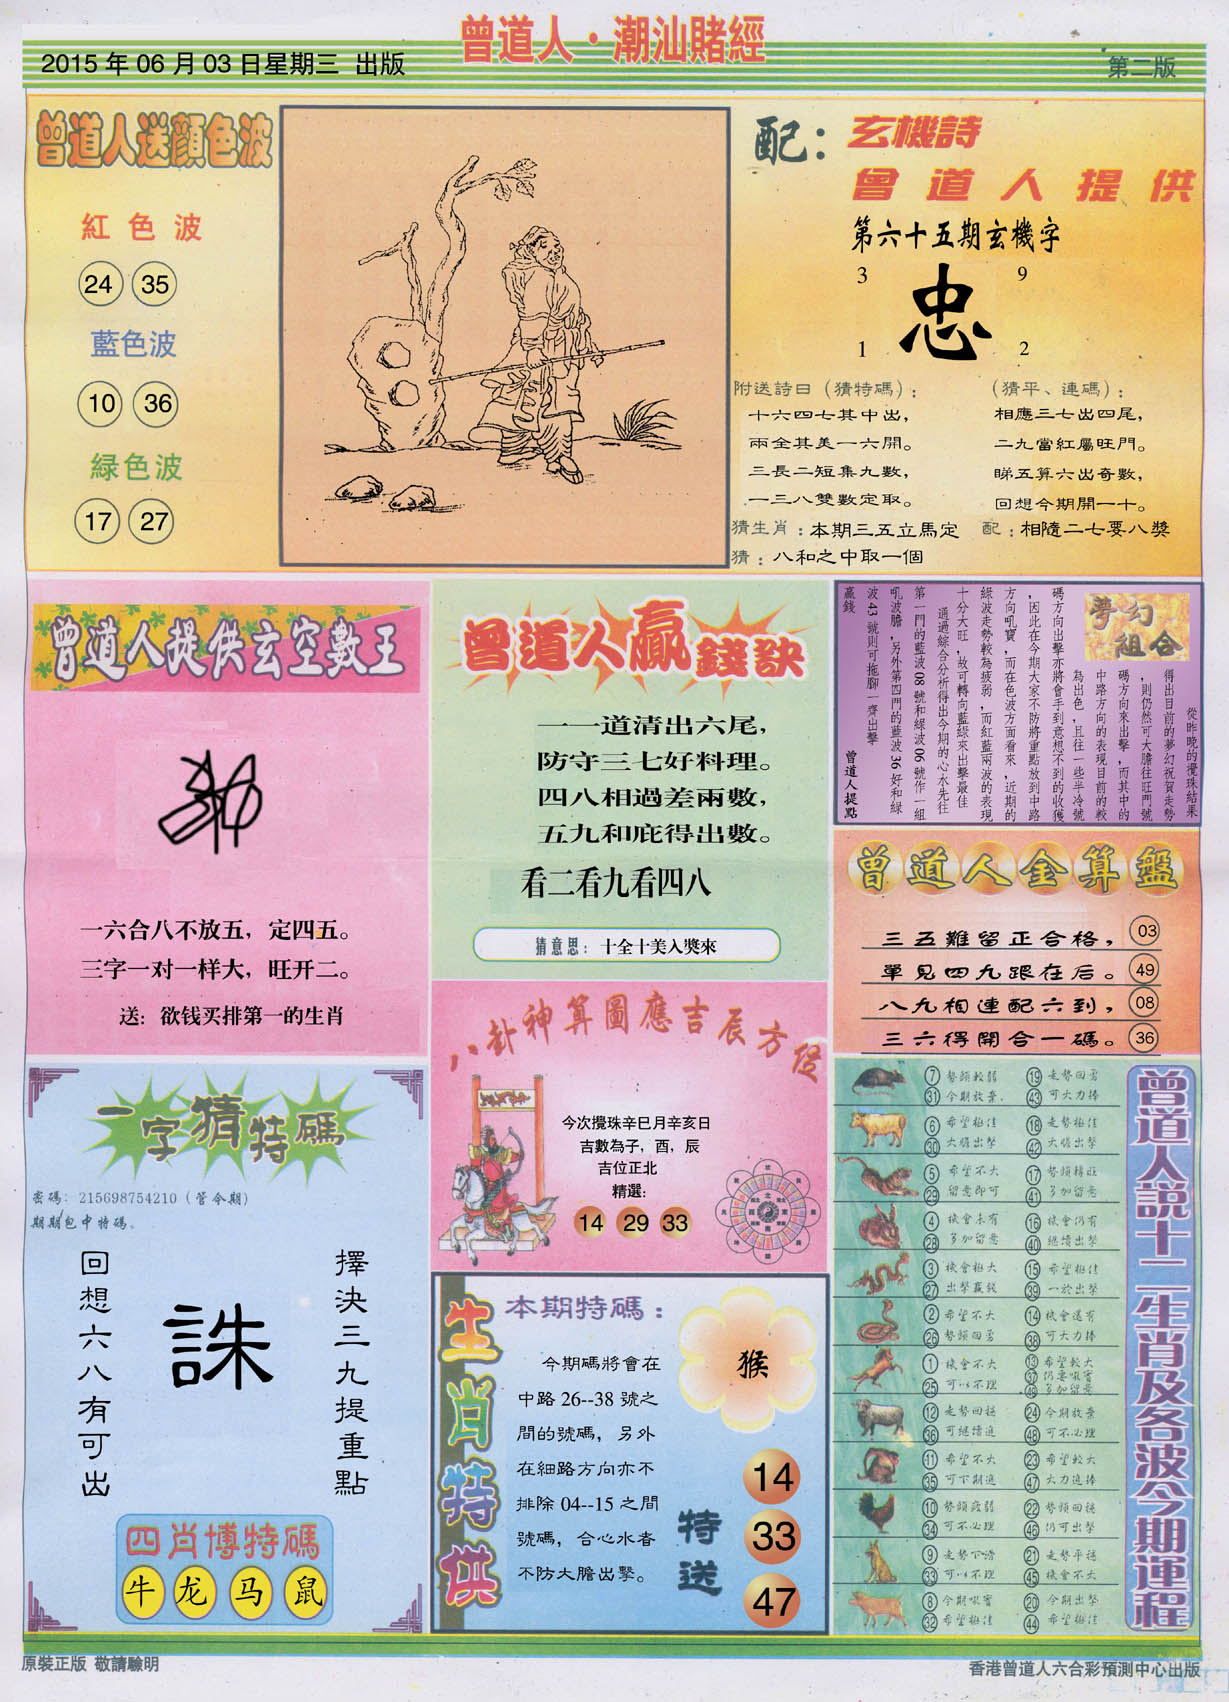 曾道人·潮汕賭經
2015 年 06 月 03 日星期三 出版
第二版
曾道人送顏色波
紅色波
24 35
藍色波
10 36
緑色波
17 27
配：
玄機詩
曾道人提供
第六十五期玄機字
3 9
忠
1 2
附送詩曰（猜特碼）：
十六四七其中出，
兩全其美一六開。
三長二短集九數，
一三八雙數定取。
（猜平、連碼）：
相應三七出四尾，
二九當紅屬旺門。
睇五算六出奇數，
回想今期開一十。
猜生肖：本期三五立馬定
配：相隨二七要八獎
猜：八和之中取一個
曾道人提供玄空數王
一六合八不放五，定四五。
三字一对一样大，旺开二。
送：欲钱买排第一的生肖
曾道人贏錢訣
一一道清出六尾，
防守三七好料理。
四八相過差兩數，
五九和庇得出數。
看二看九看四八
猜意思：十全十美入獎來
夢幻
組合
從昨晚的攪珠結果
得出目前的夢幻祝賀走勢
，則仍然可大膽往旺門號
碼方向來出擊，而其中的
中路方向的表現目前的較
為出色，且往一些半冷號
碼方向出擊亦將會手到意想不到的收獲
，因此在今期大家不防將重點放到中路
方向吼寶，而在色波方面看來，近期的
綠波走勢較為疲弱，而紅藍兩波的表現
十分大旺，故可轉向藍綠來出擊最佳
通過綜合分析得出今期的心水先往
第一門的藍波 08 號和綠波 06 號作一組
吼波膽，另外第四門的藍波 36 好和綠
波 43 號則可拖腳一齊出擊
贏錢
曾道人提點
曾道人金算盤
三五難留正合格， 03
單見四九跟在后。 49
八九相連配六到， 08
三六得開合一碼。 36
八卦神算圖應吉辰方位
今次攪珠辛巳月辛亥日
吉數為子，酉，辰
吉位正北
精選：
14 29 33
一字猜特碼
密碼：215698754210（管令期）
期期包中特碼。
擇決三九提重點
誅
回想六八有可出
四肖博特碼
牛 龙 马 鼠
生肖特供
本期特碼：
今期碼將會在
中路 26--38 號之
間的號碼，另外
在細路方向亦不
排除 04--15 之間
號碼，合心水者
不防大膽出擊。
猴
特送
14
33
47
曾道人說十二生肖及各波今期運程
7 勢頭較弱 19 走勢回勇
31 今期放棄. 43 可大力捧
6 希望極佳 18 走勢極佳
30 大膽出擊 42 大膽出擊
5 希望不大 17 勢頭轉旺
29 留意即可 41 多加留意
4 機會未有 16 機會仍有
28 多加留意 40 繼續出擊
3 機會極大 15 希望極佳
27 出擊贏錢 39 一於出擊
2 希望不大 14 機會還有
26 勢頭回勇 38 可大力捧
1 機會不大 13 希望較大
25 可以不理 37 仍要吸寶
49 多加留意
12 走勢回穩 24 今期放棄
36 可繼續追 48 可不必理
11 希望不大 23 希望較大
35 可下期追 47 大力追捧
10 勢頭疲弱 22 勢頭回穩
34 可不必理 46 仍可出擊
9 走勢下滑 21 走勢平穩
33 可以不理 45 機會不大
8 今期吸寶 20 今期出擊
32 希望極佳 44 希望極佳
原裝正版 敬請驗明
香港曾道人六合彩預測中心出版